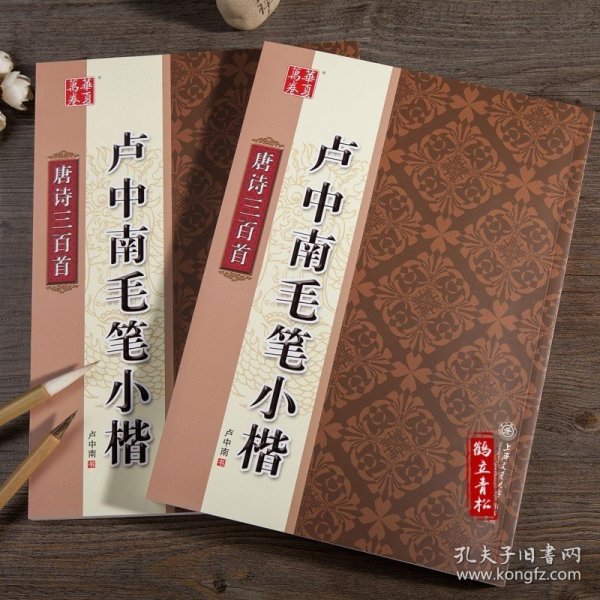 華夏
萬卷
®
唐诗三百首
卢中南毛笔小楷
卢中南 书
華夏
萬卷
®
唐诗三百首
卢中南毛笔小楷
卢中南 书
鹤立青松
孔夫子旧书网
www.kongfz.com